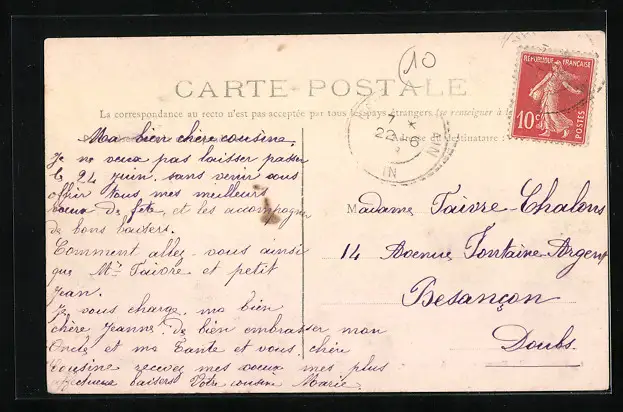 10
CARTE POSTALE
RÉPUBLIQUE FRANÇAISE
10c
POSTES
La correspondance au recto n'est pas acceptée par tous les pays étrangers (se renseigner à la
7 *
22 - 6
IN
Ma bien chère cousine,
Je ne veux pas laisser passer
le 24 Juin, sans venir vous
offrir tous mes meilleurs
voeux de fête, et les accompagner
de bons baisers.
Comment allez-vous ainsi
que Mr Faivre et petit
Jean.
Je vous charge, ma bien
chère Jeanne, de bien embrasser mon
Oncle et ma Tante et vous chère
Cousine recevez mes voeux mes plus
affectueux baisers Votre cousine Marie
Madame Faivre-Chalons
14 Avenue Fontaine-Argent
Besançon
Doubs